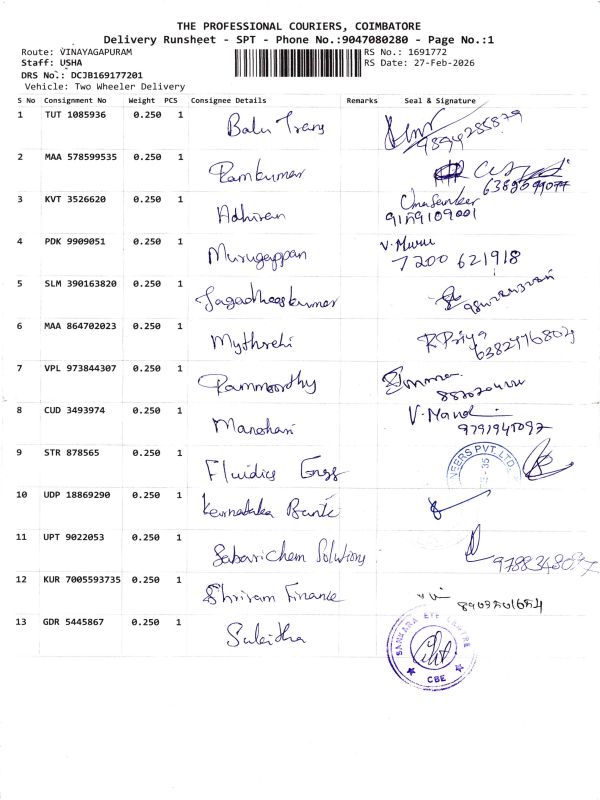 THE PROFESSIONAL COURIERS, COIMBATORE
Delivery Runsheet - SPT - Phone No.:9047080280 - Page No.:1
Route: VINAYAGAPURAM RS No.: 1691772
Staff: USHA RS Date: 27-Feb-2026
DRS No.: DCJB169177201
Vehicle: Two Wheeler Delivery
S No Consignment No Weight PCS Consignee Details Remarks Seal & Signature
1 TUT 1085936 0.250 1 Balu Trans 9894285879
2 MAA 578599535 0.250 1 Ramkumar
3 KVT 3526620 0.250 1 Adhiran Umasankar
9159109001
4 PDK 9909051 0.250 1 Murugappan V. Muru
7200 621918
5 SLM 390163820 0.250 1 Jagadheeskumar
6 MAA 864702023 0.250 1 Mythrehi R Priya
6382776804
7 VPL 973844307 0.250 1 Rammoorthy
8 CUD 3493974 0.250 1 Manohari V. Nandi
9791945097
9 STR 878565 0.250 1 Fluidics Enggs NEERS PVT LTD
10 UDP 18869290 0.250 1 Karnataka Bank
11 UPT 9022053 0.250 1 Sabarichem Solutions
12 KUR 7005593735 0.250 1 Shriram Finance
13 GDR 5445867 0.250 1 Sulcitha SANKARA EYE CENTRE
CBE